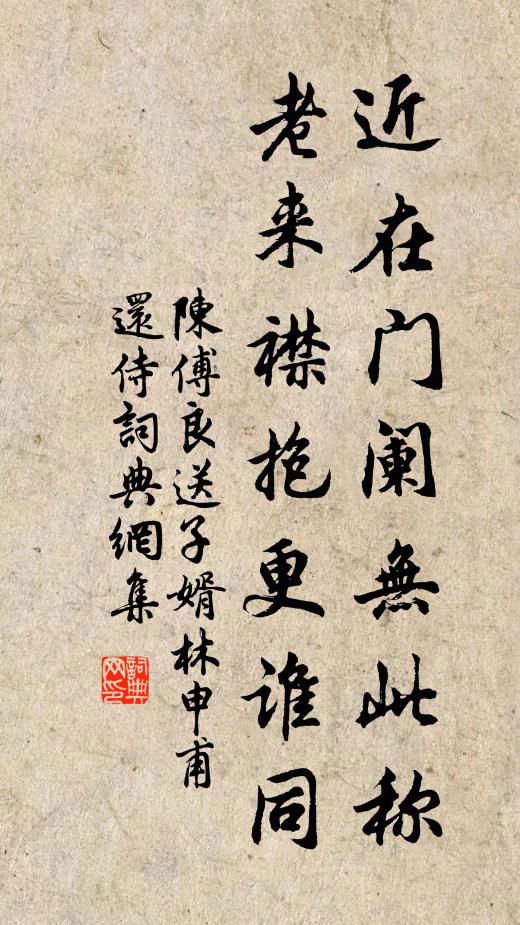 近在门阑無此称
老来襟抱更谁同
陳傅良送子婿林申甫
還侍詞典網集
詞典
网印